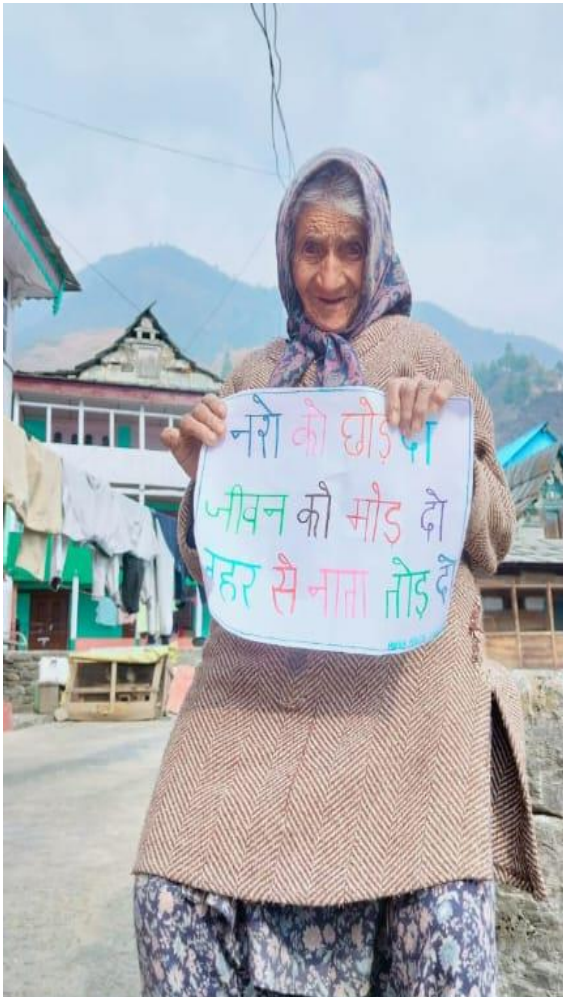 नशे को छोड़ दो
जीवन को मोड़ दो
ज़हर से नाता तोड़ दो